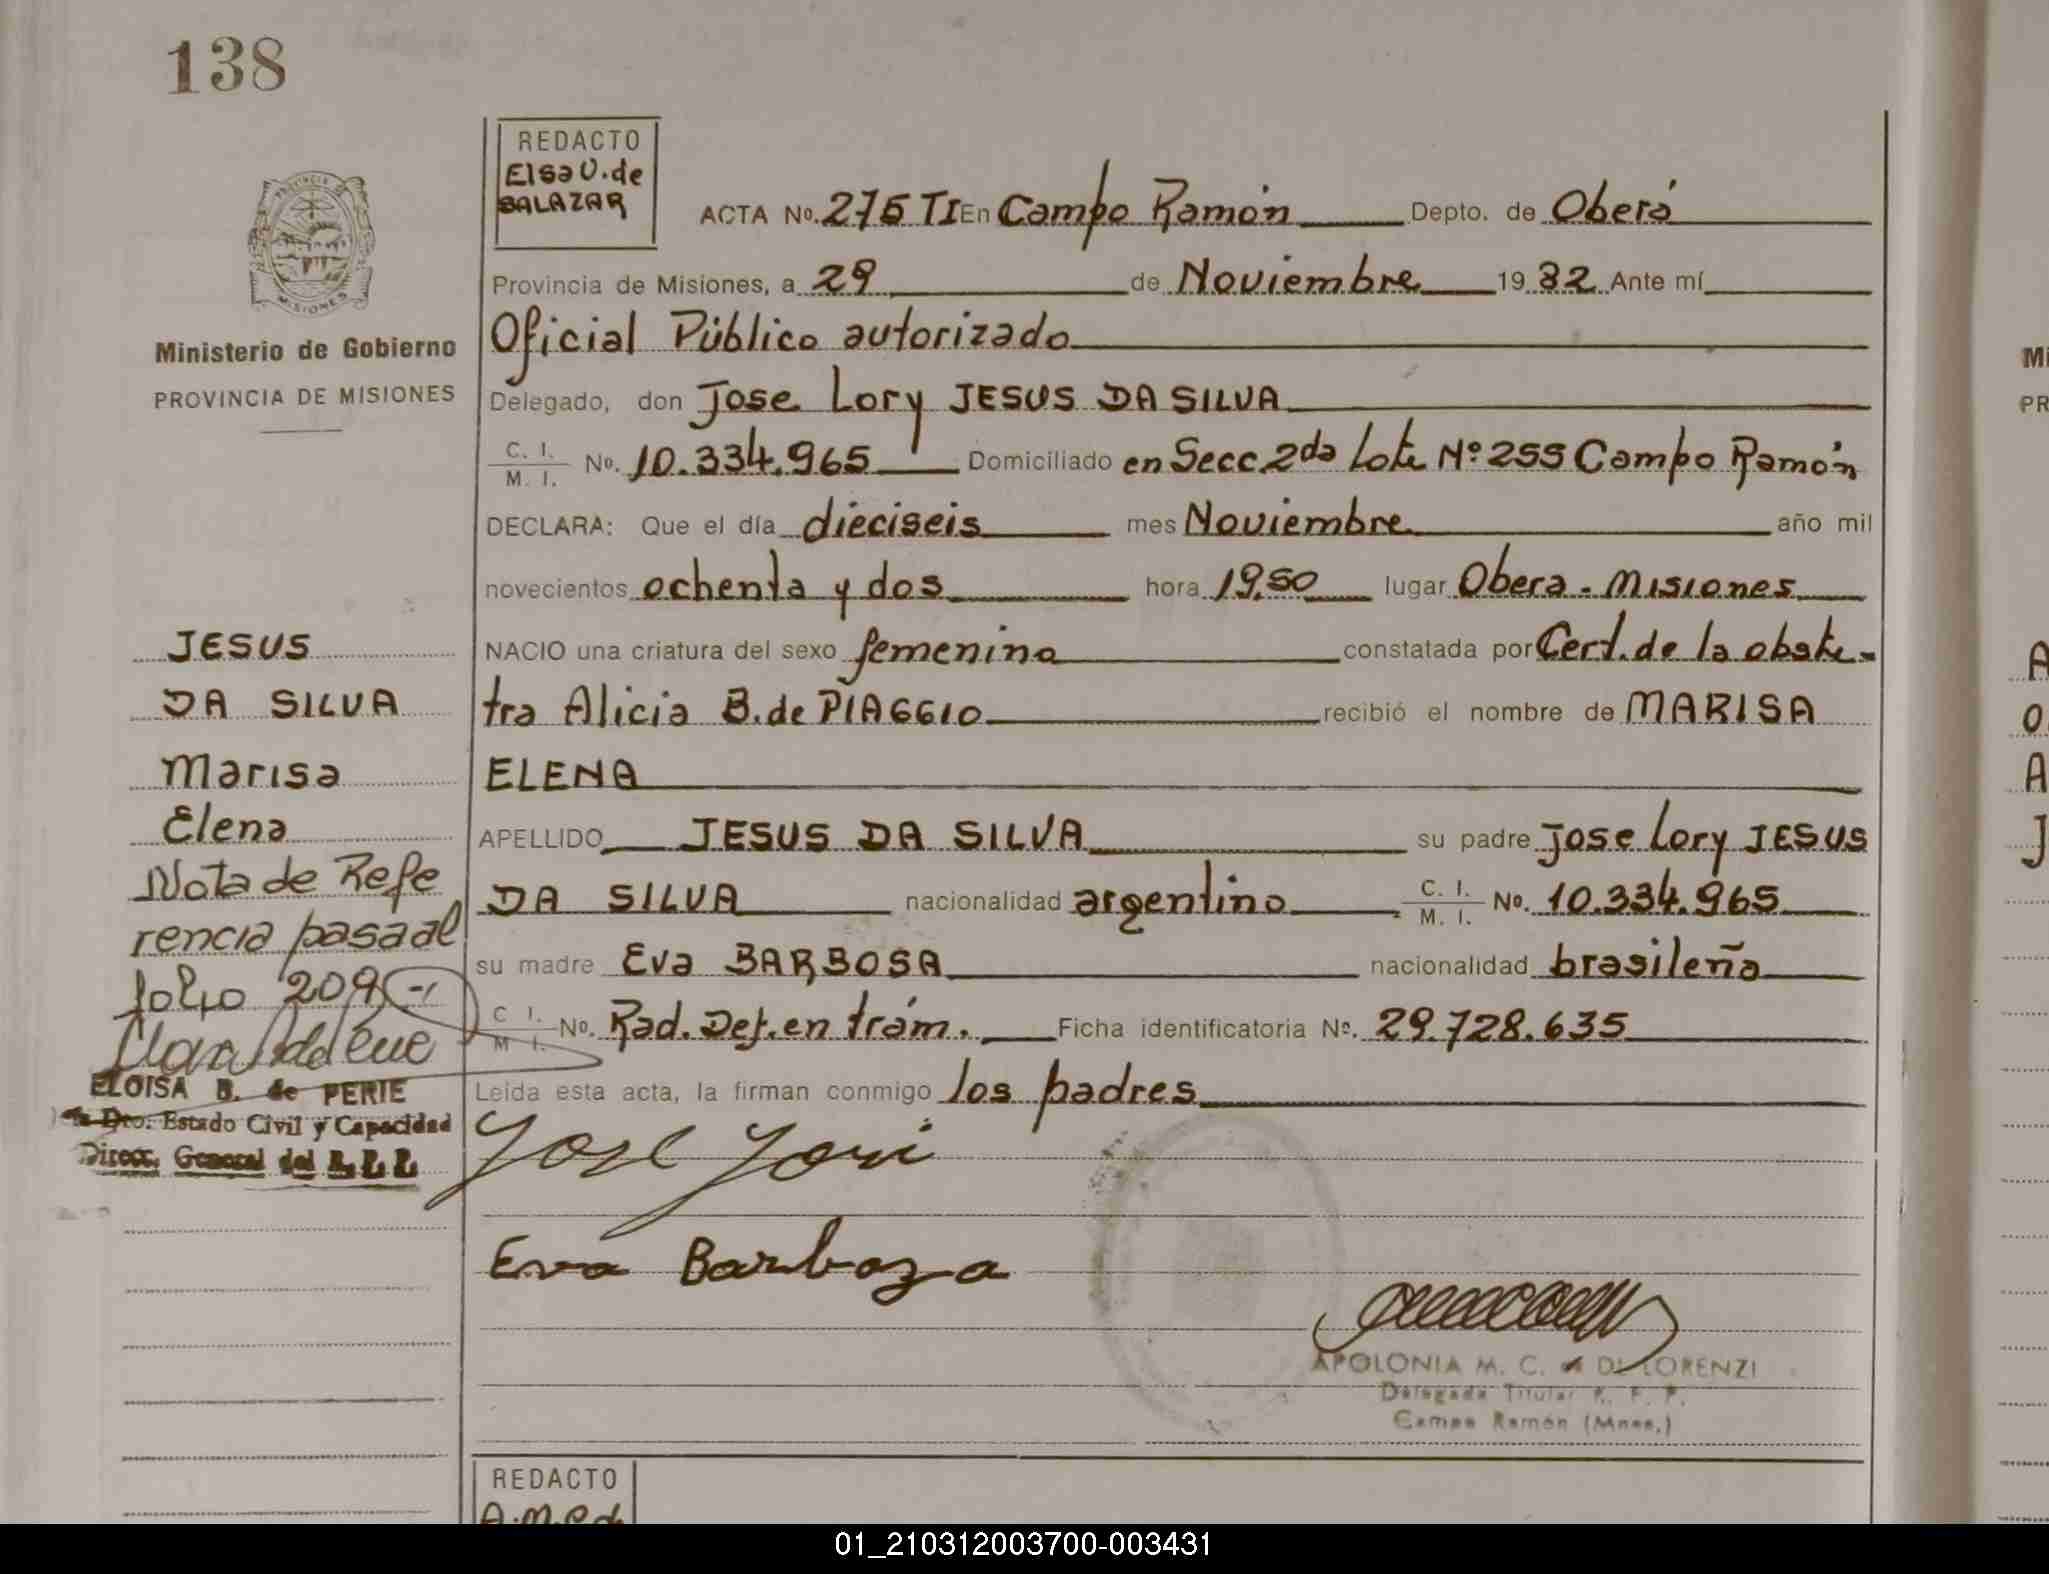 138
REDACTO
Elsa V. de
SALAZAR
ACTA No. 275 TI En Campo Ramón Depto. de Oberá
Provincia de Misiones, a 29 de Noviembre 19 82 Ante mí
Oficial Público autorizado
Delegado, don Jose Lory JESUS DA SILVA
C. I. M. I. No. 10.334.965 Domiciliado en Secc. 2da Lote Nº 255 Campo Ramón
DECLARA: Que el día dieciseis mes Noviembre año mil
novecientos ochenta y dos hora 19,50 lugar Obera - Misiones
NACIO una criatura del sexo femenino constatada por Cert. de la obste-
tra Alicia B. de PIAGGIO recibió el nombre de MARISA
ELENA
APELLIDO JESUS DA SILVA su padre Jose Lory JESUS
DA SILVA nacionalidad argentino C. I. M. I. No. 10.334.965
su madre Eva BARBOSA nacionalidad brasileña
C. I. M. I. No. Rad. Def. en trám. Ficha identificatoria Nº. 29.728.635
Leída esta acta, la firman conmigo los padres
Eva Barboza
APOLONIA M. C. de DI LORENZI
Delegada Titular R. P. P.
Campo Ramón (Mnes.)
PROVINCIA DE
MISIONES
Ministerio de Gobierno
PROVINCIA DE MISIONES
JESUS
DA SILVA
Marisa
Elena
Nota de Refe
rencia pasa al
folio 209
ELOISA B. de PERIE
Dto. Estado Civil y Capacidad
Direcc. General del
REDACTO
Mi
PR
A
O
A
J
01_210312003700-003431